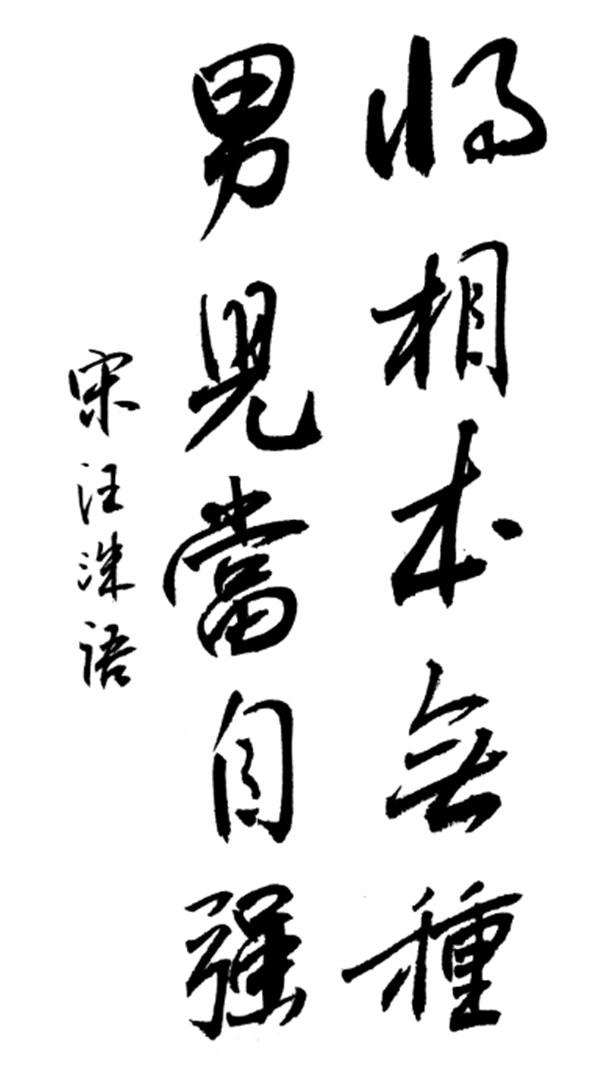 将相本無種
男兒當自强
宋汪洙语